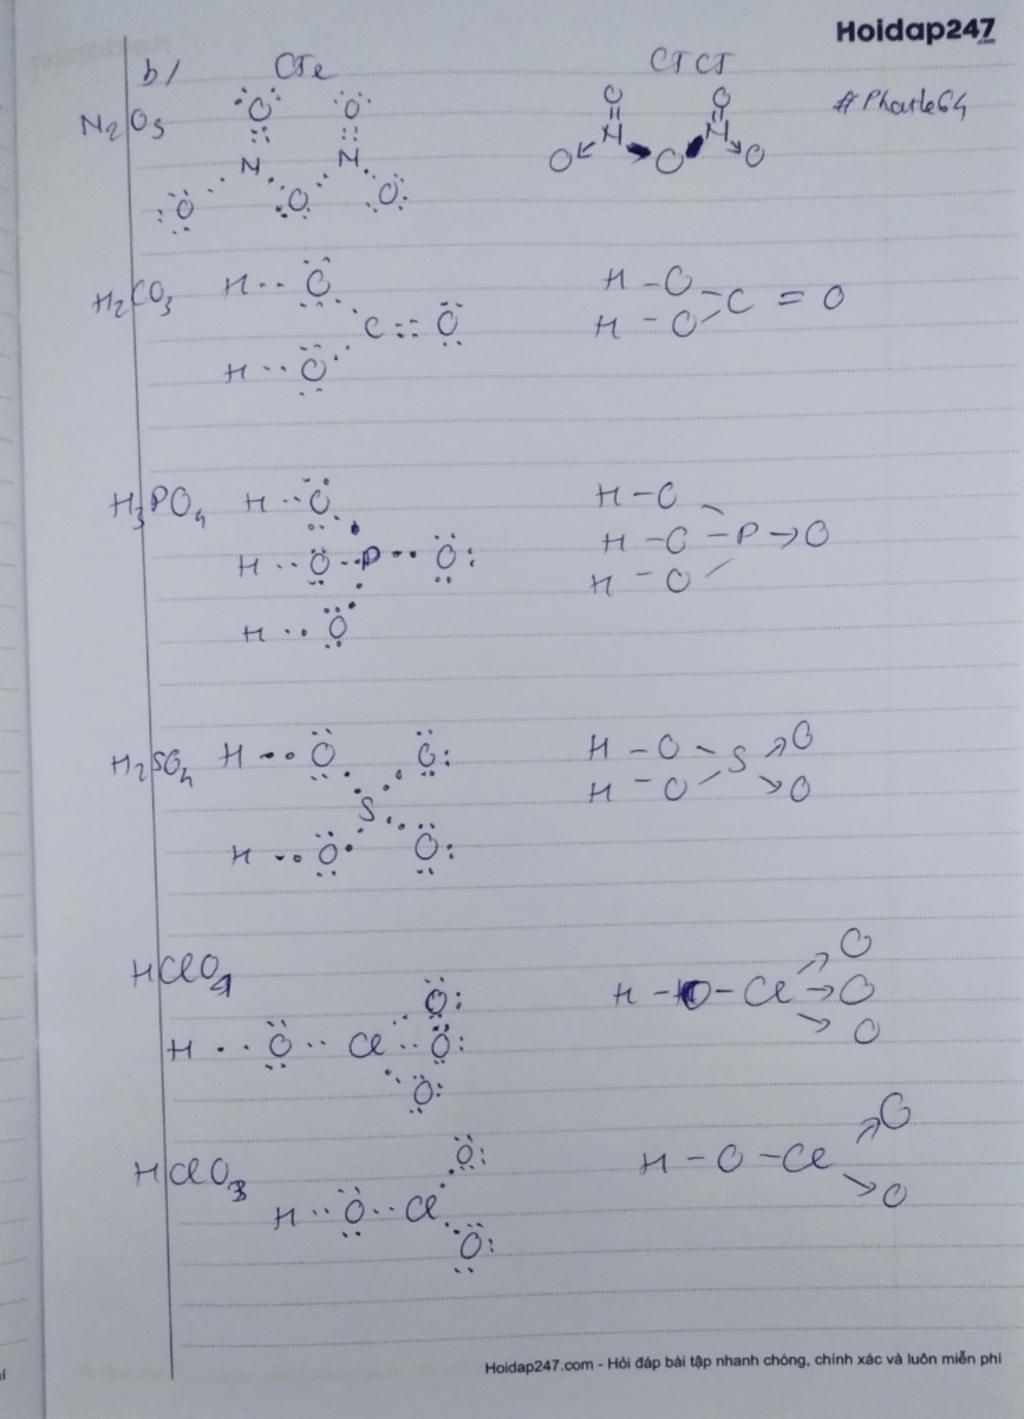 Hoidap247
.com
b/ CTe CTCT
#Pharle64
N₂O₅
O O O O
N N N N
O O O O O O
H₂CO₃
H O H - O
C :: O - C = O
H O H - O
H₃PO₄
H O H - O
H O P O H - O - P → O
H O H - O
H₂SO₄
H O O H - O - S → O
S
H O O H - O → O
HClO₄
O O
H O Cl O H - O - Cl → O
O O
HClO₃
O O
H O Cl H - O - Cl
O O
Hoidap247.com - Hỏi đáp bài tập nhanh chóng, chính xác và luôn miễn phí